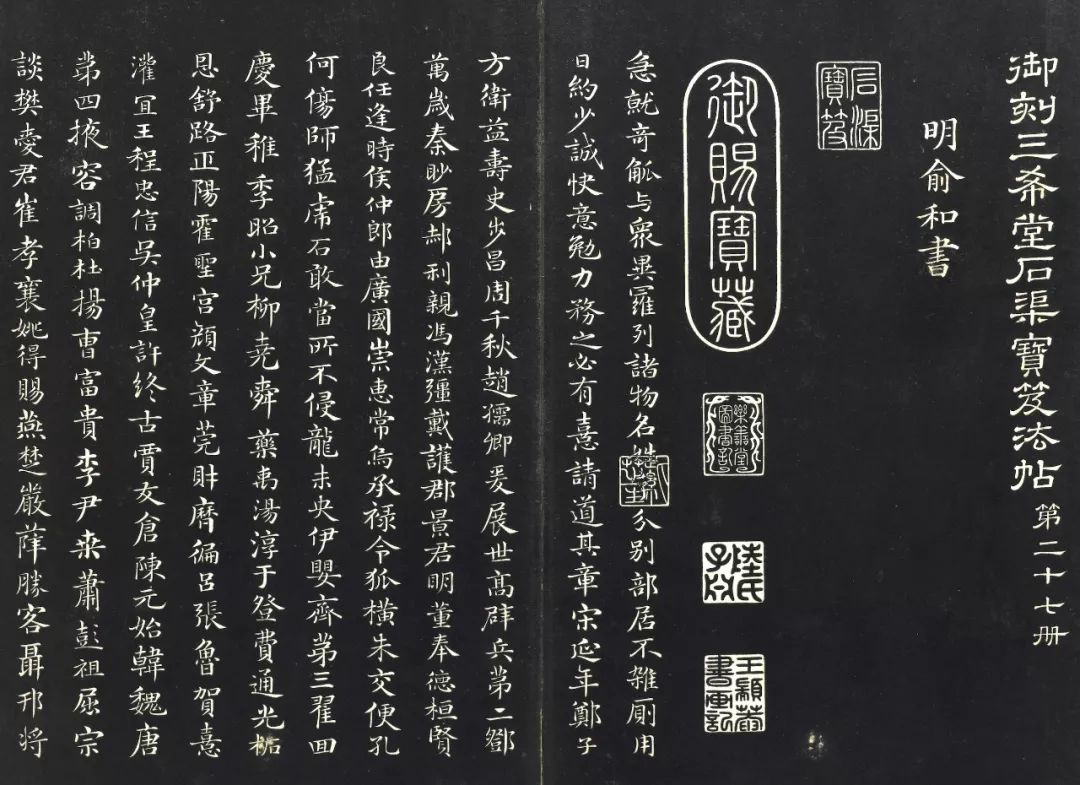 御刻三希堂石渠寶笈法帖 第二十七册
明俞和書
石渠寶笈
御賜寶藏
急就奇觚与衆異羅列諸物名姓字分别部居不雜厠用
日約少誠快意勉力務之必有憙請道其章宋延年鄭子
方衛益壽史步昌周千秋趙孺卿爰展世高辟兵第二鄧
萬歲秦眇房郝利親馮漢彊戴護郡景君明董奉德桓賢
良任逢時侯仲郎由廣國崇惠常烏承禄令狐橫朱交便孔
何傷師猛虎石敢當所不侵龍未央伊嬰齊第三翟回
慶畢稚季昭小兄柳堯舜藥禹湯淳于登費通光柘
恩舒路正陽霍聖宫顔文章莞財磨徧吕張魯賀憙
灌冝王程忠信吳仲皇許終古賈友倉陳元始韓魏唐
第四掖容調柏杜揚曹富貴李尹桒蕭彭祖屈宗
談樊愛君崔孝襄姚得賜燕楚嚴薛勝客聶邘將